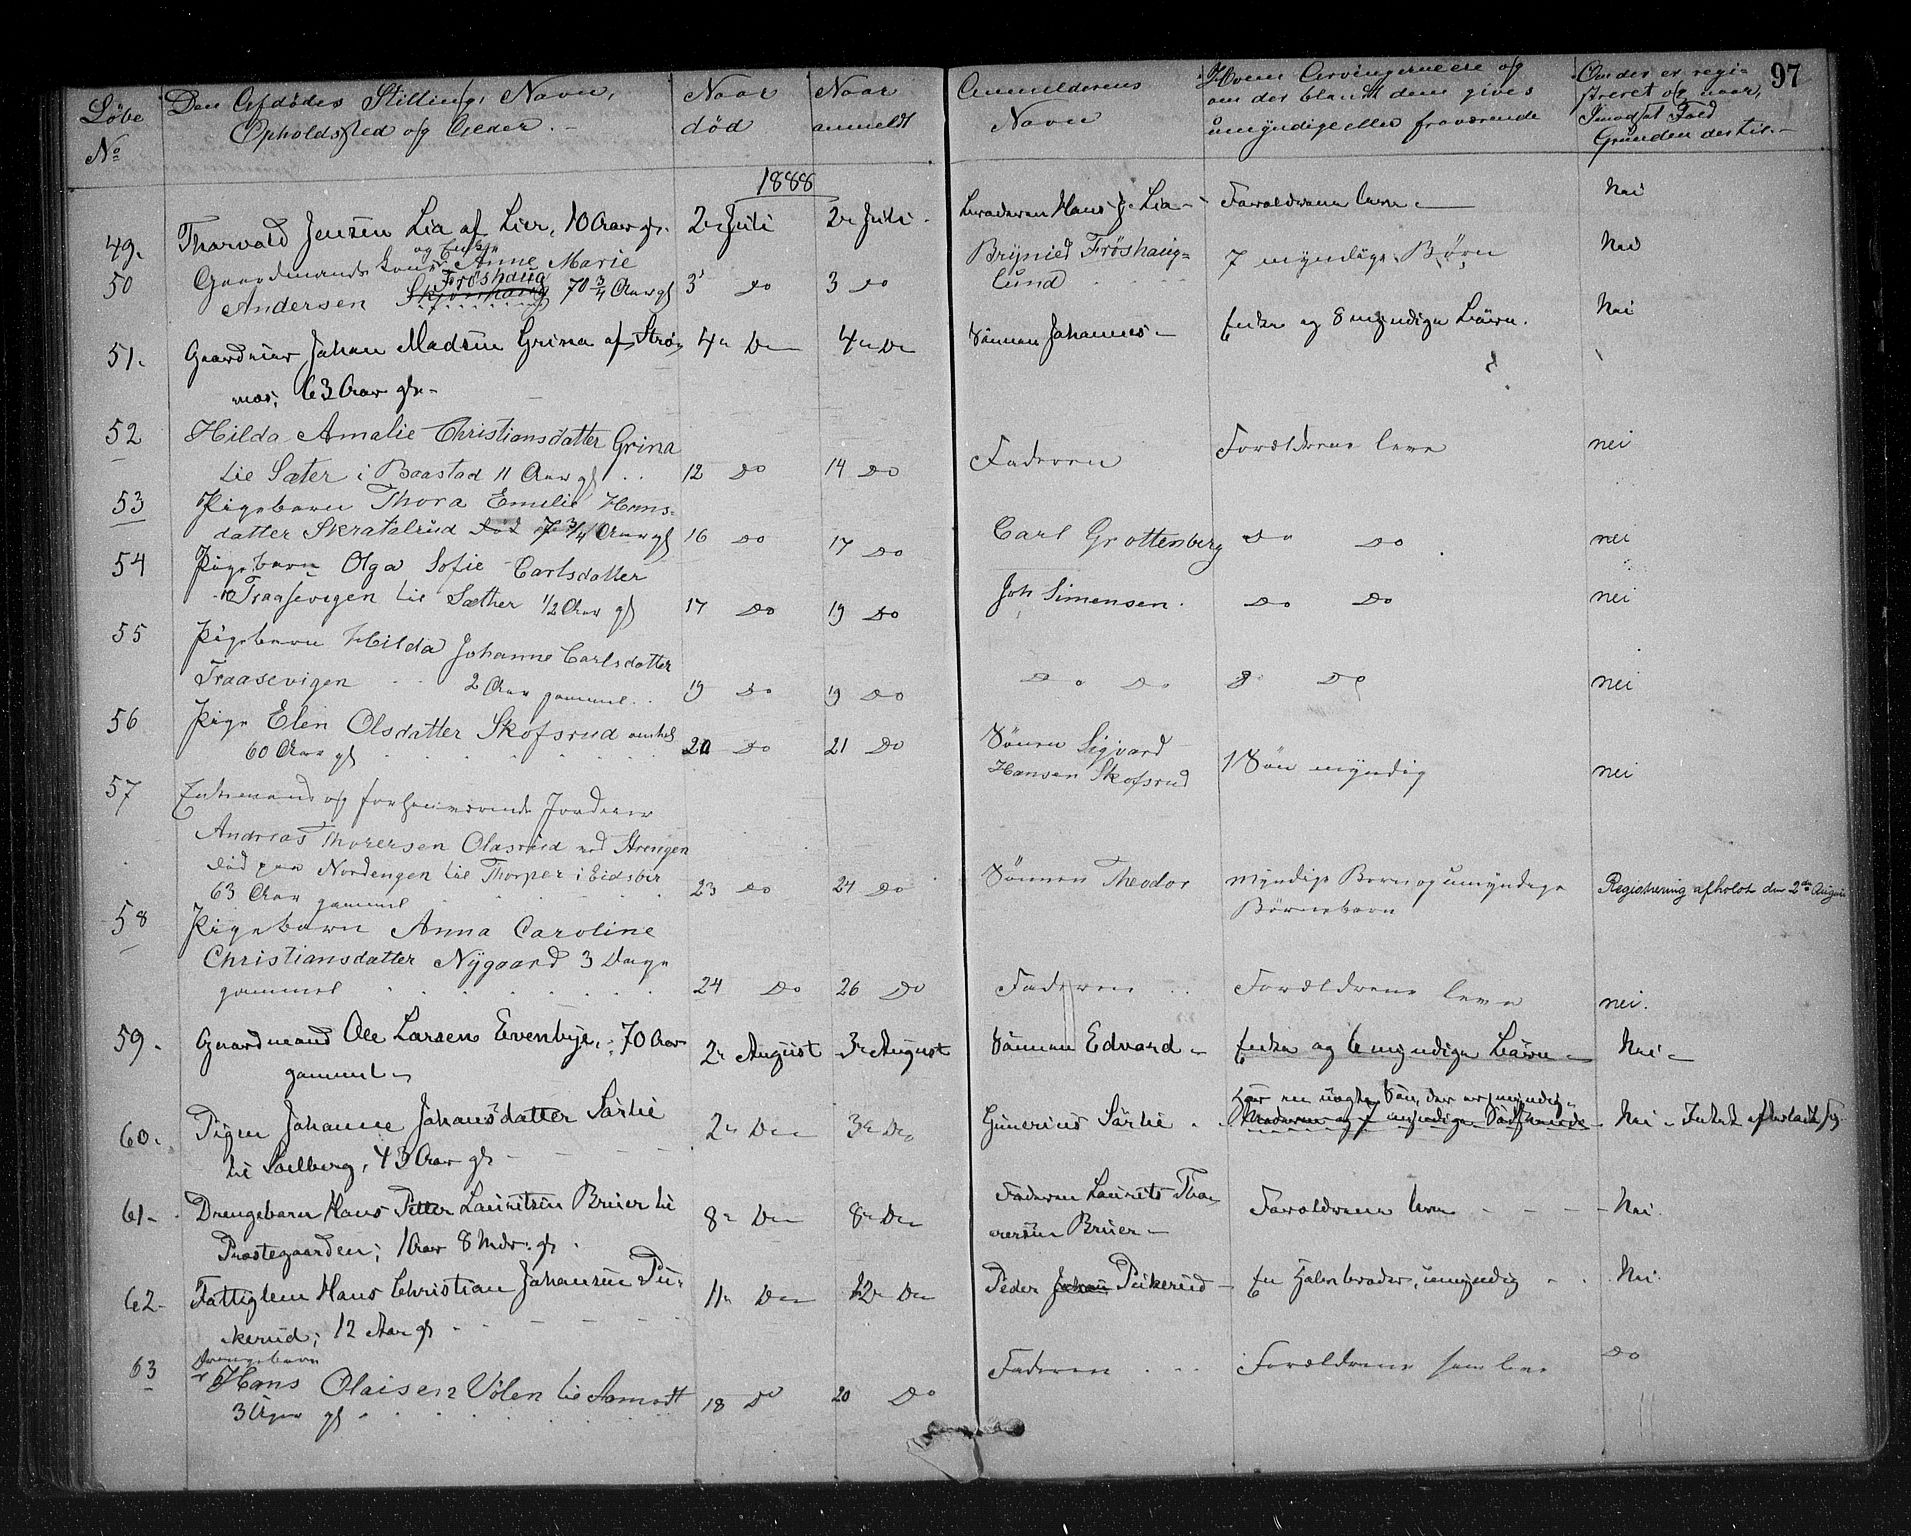 97
Løbe No
Den Afdødes Stilling, Navn, Opholdssted og Alder.
Naar død
Naar anmeldt
Anmelderens Navn
Hvem Arvingerne ere og om der blandt dem gives umyndige eller fraværende
Om der er registreret og naar, i modsat Fald Grunden dertil.
1888
49. Thorvald Jensen Lia af Lier, 10 Aar gl. 2n Juli 2n Juli. Broderen Hans J. Lia - Forældrene leve - Nei
50 Gaardmandskone og Enke Anne Marie 
Andersen Skjønhaug Frøshaug 70 3/4 Aar gl 3 Do 3 Do Brynild Frøshaug-
lund 7 myndige Børn Nei
51. Gaardeier Johan Madsen Grina af Strø-
mos; 63 Aar gl. 4n Do 4n Do Sønnen Johannes - Enke og 8 myndige Børn. Nei
52 Hilda Amalie Christiansdatter Grina
lie Sæter i Baastad 11 Aar gl 12 Do 14 Do Faderen Forældrene leve nei
53 Pigebarn Thora Emilie Hans-
datter Skratalrud død 7 3/4 Aar gl 16 Do 17 Do Carl Grottenberg Do Do. nei
54 Pigebarn Olga Sofie Carlsdatter
Traasevigen lie Sæther 1/2 Aar gl 17 Do 19 Do Joh Simensen. Do Do nei
55 Pigebarn Hilda Johanne Carlsdatter
Traasevigen 2 Aar gammel 19 Do 19 Do Do Do Do Do nei
56 Pige Elen Olsdatter Skofsrud
60 Aar gl 20 Do 21 Do Sønen Sigvard
Hansen Skofsrud 1 Søn myndig nei
57 Enkemand og forhenværende Jordeier
Andreas Thorersen Olasrud ved Strengen
død paa Nordengen lie Thorper i Eidsber
63 Aar gammel 23 Do 24 Do Sønnen Theodor myndige Børn og umyndige
Børnebørn Registrering afholdt den 2den August
58 Pigebarn Anna Caroline
Christiansdatter Nygaard 3 Dage
gammel 24 Do 26 Do Faderen Forældrene leve nei.
59. Gaardmand Ole Larsen Evenbye, 70 Aar
gammel 2n August 3n August Sønnen Edvard - Enke og 6 myndige Børn - Nei -
60. Pigen Johanne Johansdatter Sørlie
lie Solberg, 43 Aar gl 2n Do 3n Do Gunerius Sørlie. Har en uægte Søn, der er myndig.
Moderen og 7 myndige Sødskende Nei - Intet efterladt sig.
61. Drengebarn Hans Petter Lauritsen Bruer lie
Præstegaarden; 1 Aar 8 Mdr. gl. 8n Do 8n Do Faderen Laurits Tho-
rersen Bruer - Forældrene leve - Nei.
62. Fattiglem Hans Christian Johansen Pu-
kerud; 12 Aar gl 11n Do 12 Do Peder Johan Pukerud - En Halvbroder, umyndig. Nei.
63 Drengebarn
Hans Olaisen Volen lie Aamodt
3 Uger gl 18 Do 20 Do Faderen Forældrene som leve Do